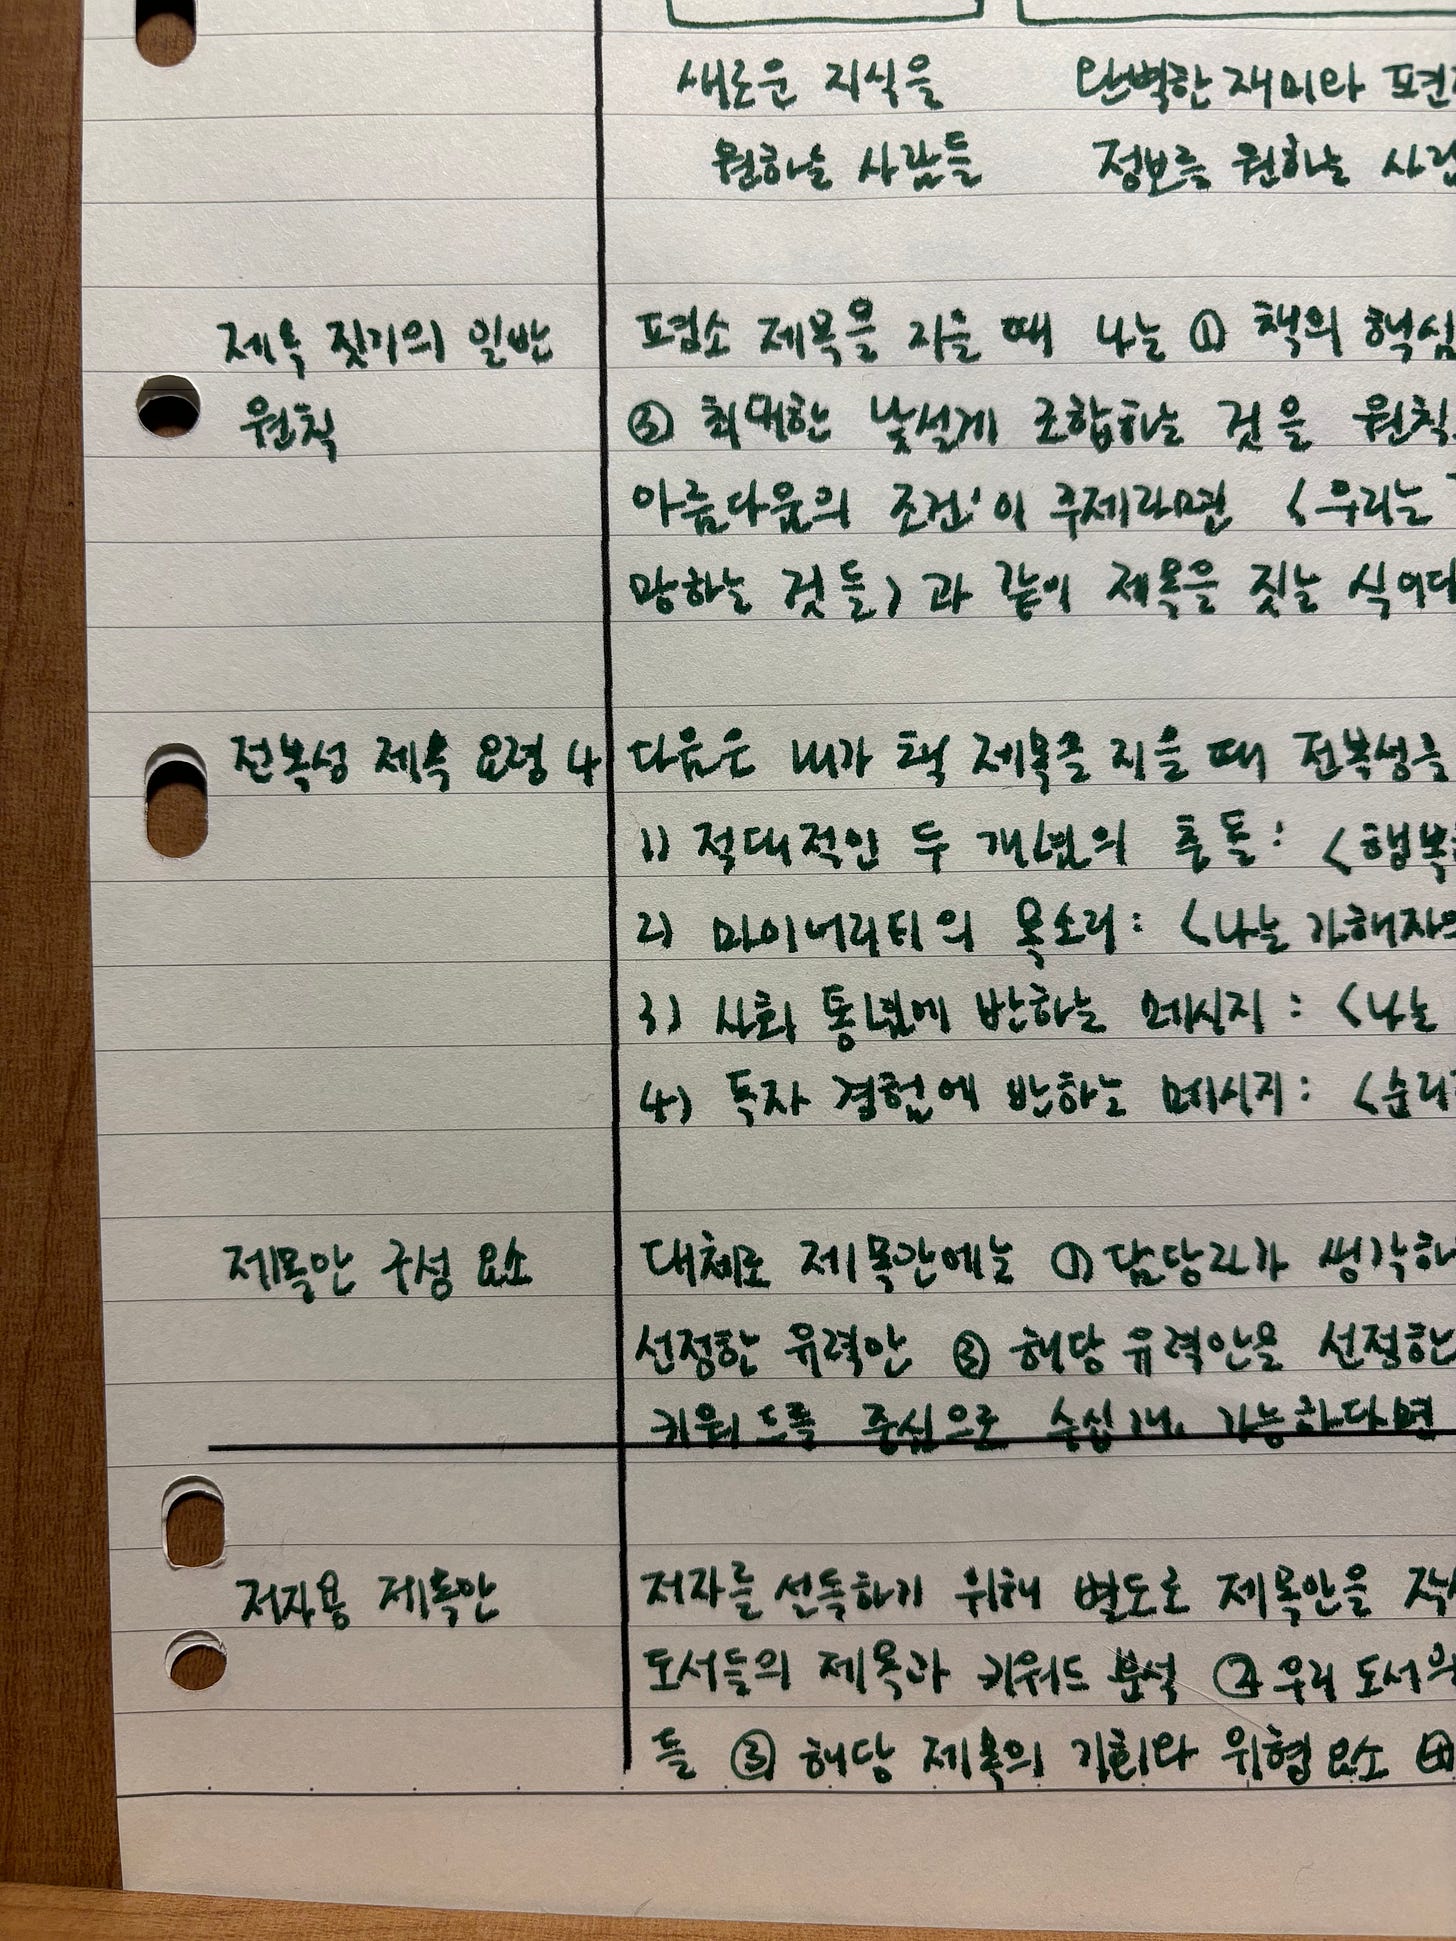 새로운 지식을 완벽한 재미와
원하는 사람들 정보를 원하는
제목 짓기의 일반 평소 제목을 지을 때 나는 ① 책의 핵심
원칙 ② 최대한 낯설게 조합하는 것을 원칙
아름다움의 조건'이 주제라면 <우리는
망하는 것들>과 같이 제목을 짓는 식이다
전복성 제목 요령 4 다음은 내가 책 제목을 지을 때 전복성을
1) 적대적인 두 개념의 충돌: <행복
2) 마이너리티의 목소리: <나는 가해자의
3) 사회 통념에 반하는 메시지: <나는
4) 독자 경험에 반하는 메시지:
제목안 구성 요소 대체로 제목안에는 ① 담당자가 생각하
선정한 유력안 ② 해당 유력안을 선정한
키워드를 중심으로 수십 개, 가능하다면
저자용 제목안 저자를 설득하기 위해 별도로 제목안을
도서들의 제목과 키워드 분석 ② 우리 도서의
들 ③ 해당 제목의 기회와 위협 요소 ④